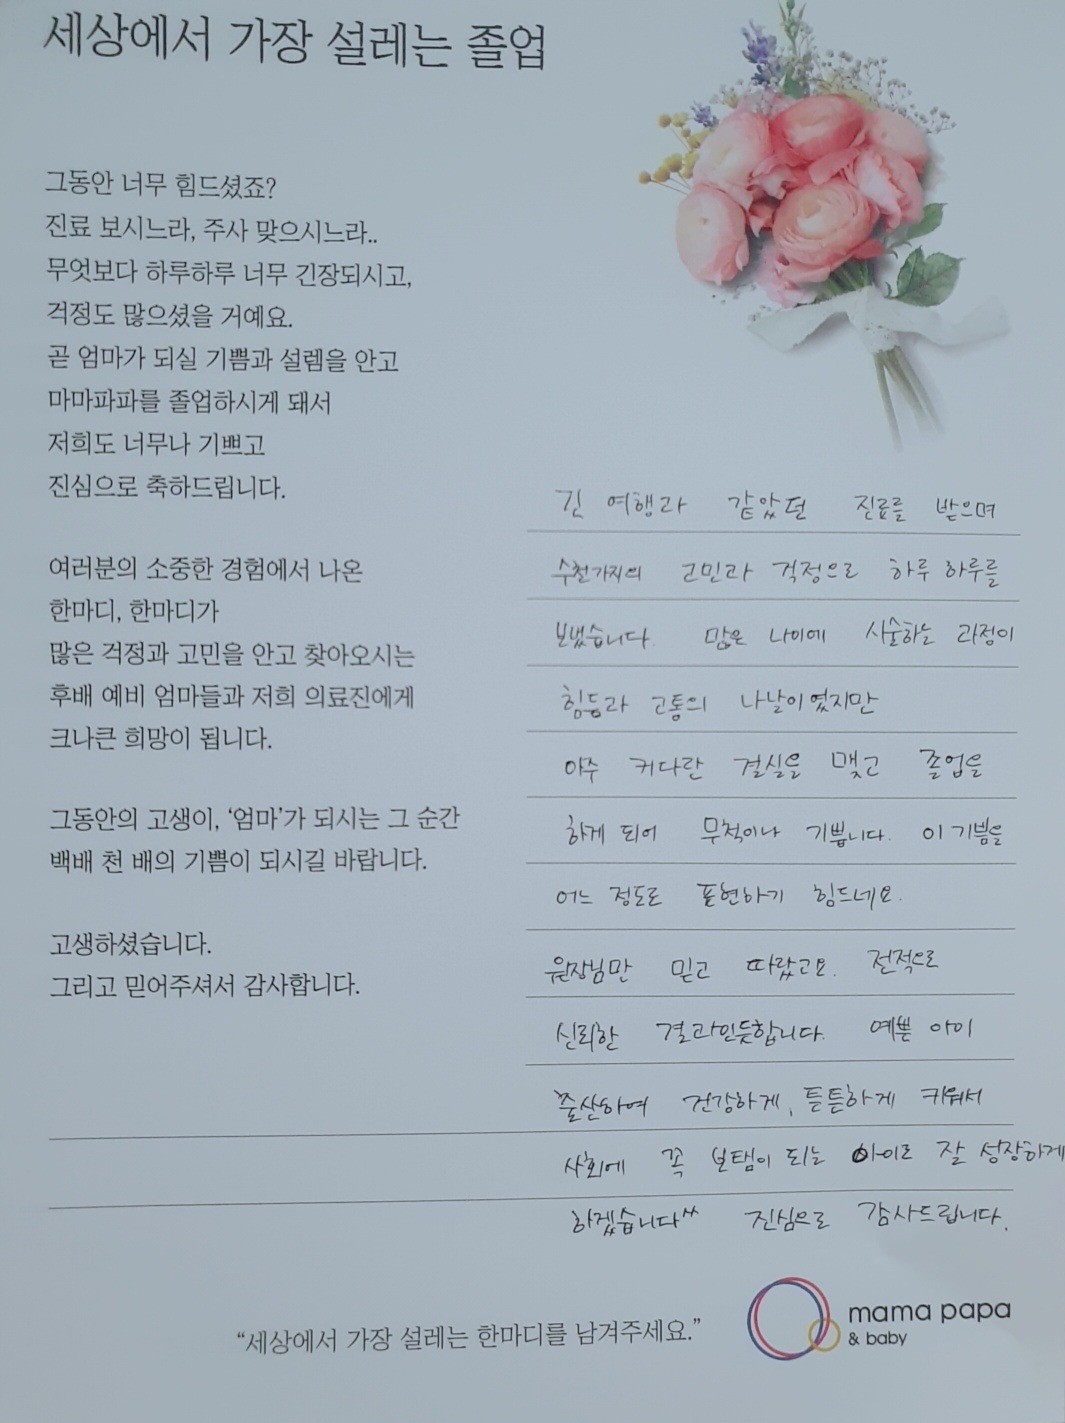 세상에서 가장 설레는 졸업
그동안 너무 힘드셨죠?
진료 보시느라, 주사 맞으시느라..
무엇보다 하루하루 너무 긴장되시고,
걱정도 많으셨을 거예요.
곧 엄마가 되실 기쁨과 설렘을 안고
마마파파를 졸업하시게 돼서
저희도 너무나 기쁘고
진심으로 축하드립니다.
여러분의 소중한 경험에서 나온
한마디, 한마디가
많은 걱정과 고민을 안고 찾아오시는
후배 예비 엄마들과 저희 의료진에게
크나큰 희망이 됩니다.
그동안의 고생이, ‘엄마’가 되시는 그 순간
백배 천 배의 기쁨이 되시길 바랍니다.
고생하셨습니다.
그리고 믿어주셔서 감사합니다.
긴 여행과 같았던 진료를 받으며
수천가지의 고민과 걱정으로 하루 하루를
보냈습니다. 많은 나이에 시술하는 과정이
힘듬과 고통의 나날이었지만
아주 커다란 결실을 맺고 졸업을
하게 되어 무척이나 기쁩니다. 이 기쁨을
어느 정도로 표현하기 힘드네요.
원장님만 믿고 따랐고요. 전적으로
신뢰한 결과인듯합니다. 예쁜 아이
출산하여 건강하게, 튼튼하게 키워서
사회에 꼭 보탬이 되는 아이로 잘 성장하게
하겠습니다^^ 진심으로 감사드립니다.
“세상에서 가장 설레는 한마디를 남겨주세요.”
mama papa
& baby